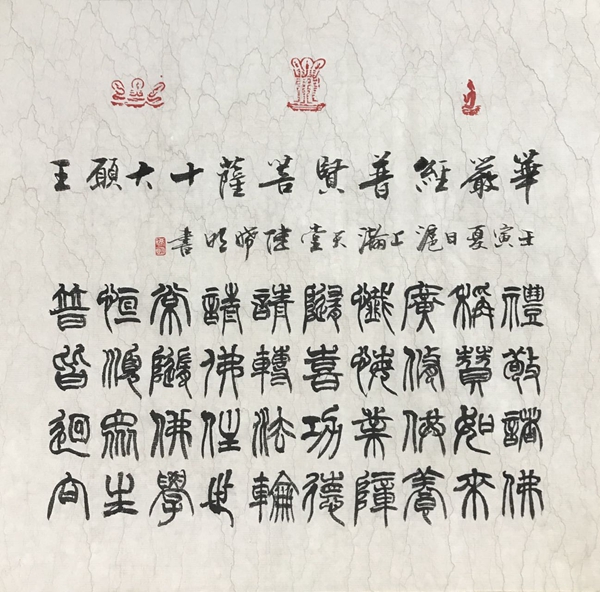 華嚴經普賢菩薩十大願王
壬寅夏日滬上天堂陸明書
禮敬諸佛
稱贊如來
廣修供養
懺悔業障
隨喜功德
請轉法輪
請佛住世
常隨佛學
恒順眾生
普皆迴向